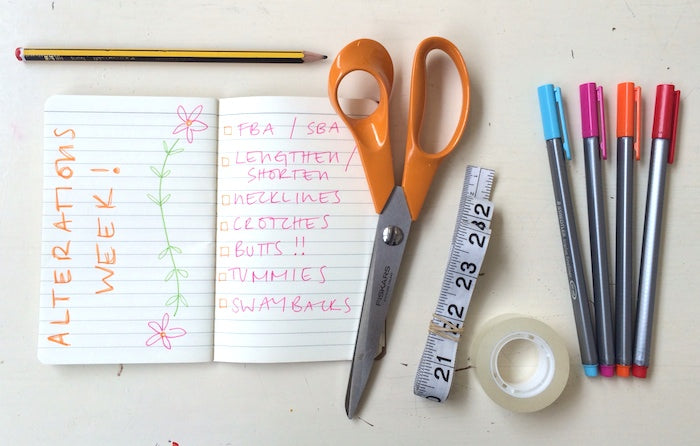 ALTERATIONS
WEEK!
FBA / SBA
LENGTHEN /
SHORTEN
NECKLINES
CROTCHES
BUTTS !!
TUMMIES
SWAYBACKS
FISKARS
21
22
23